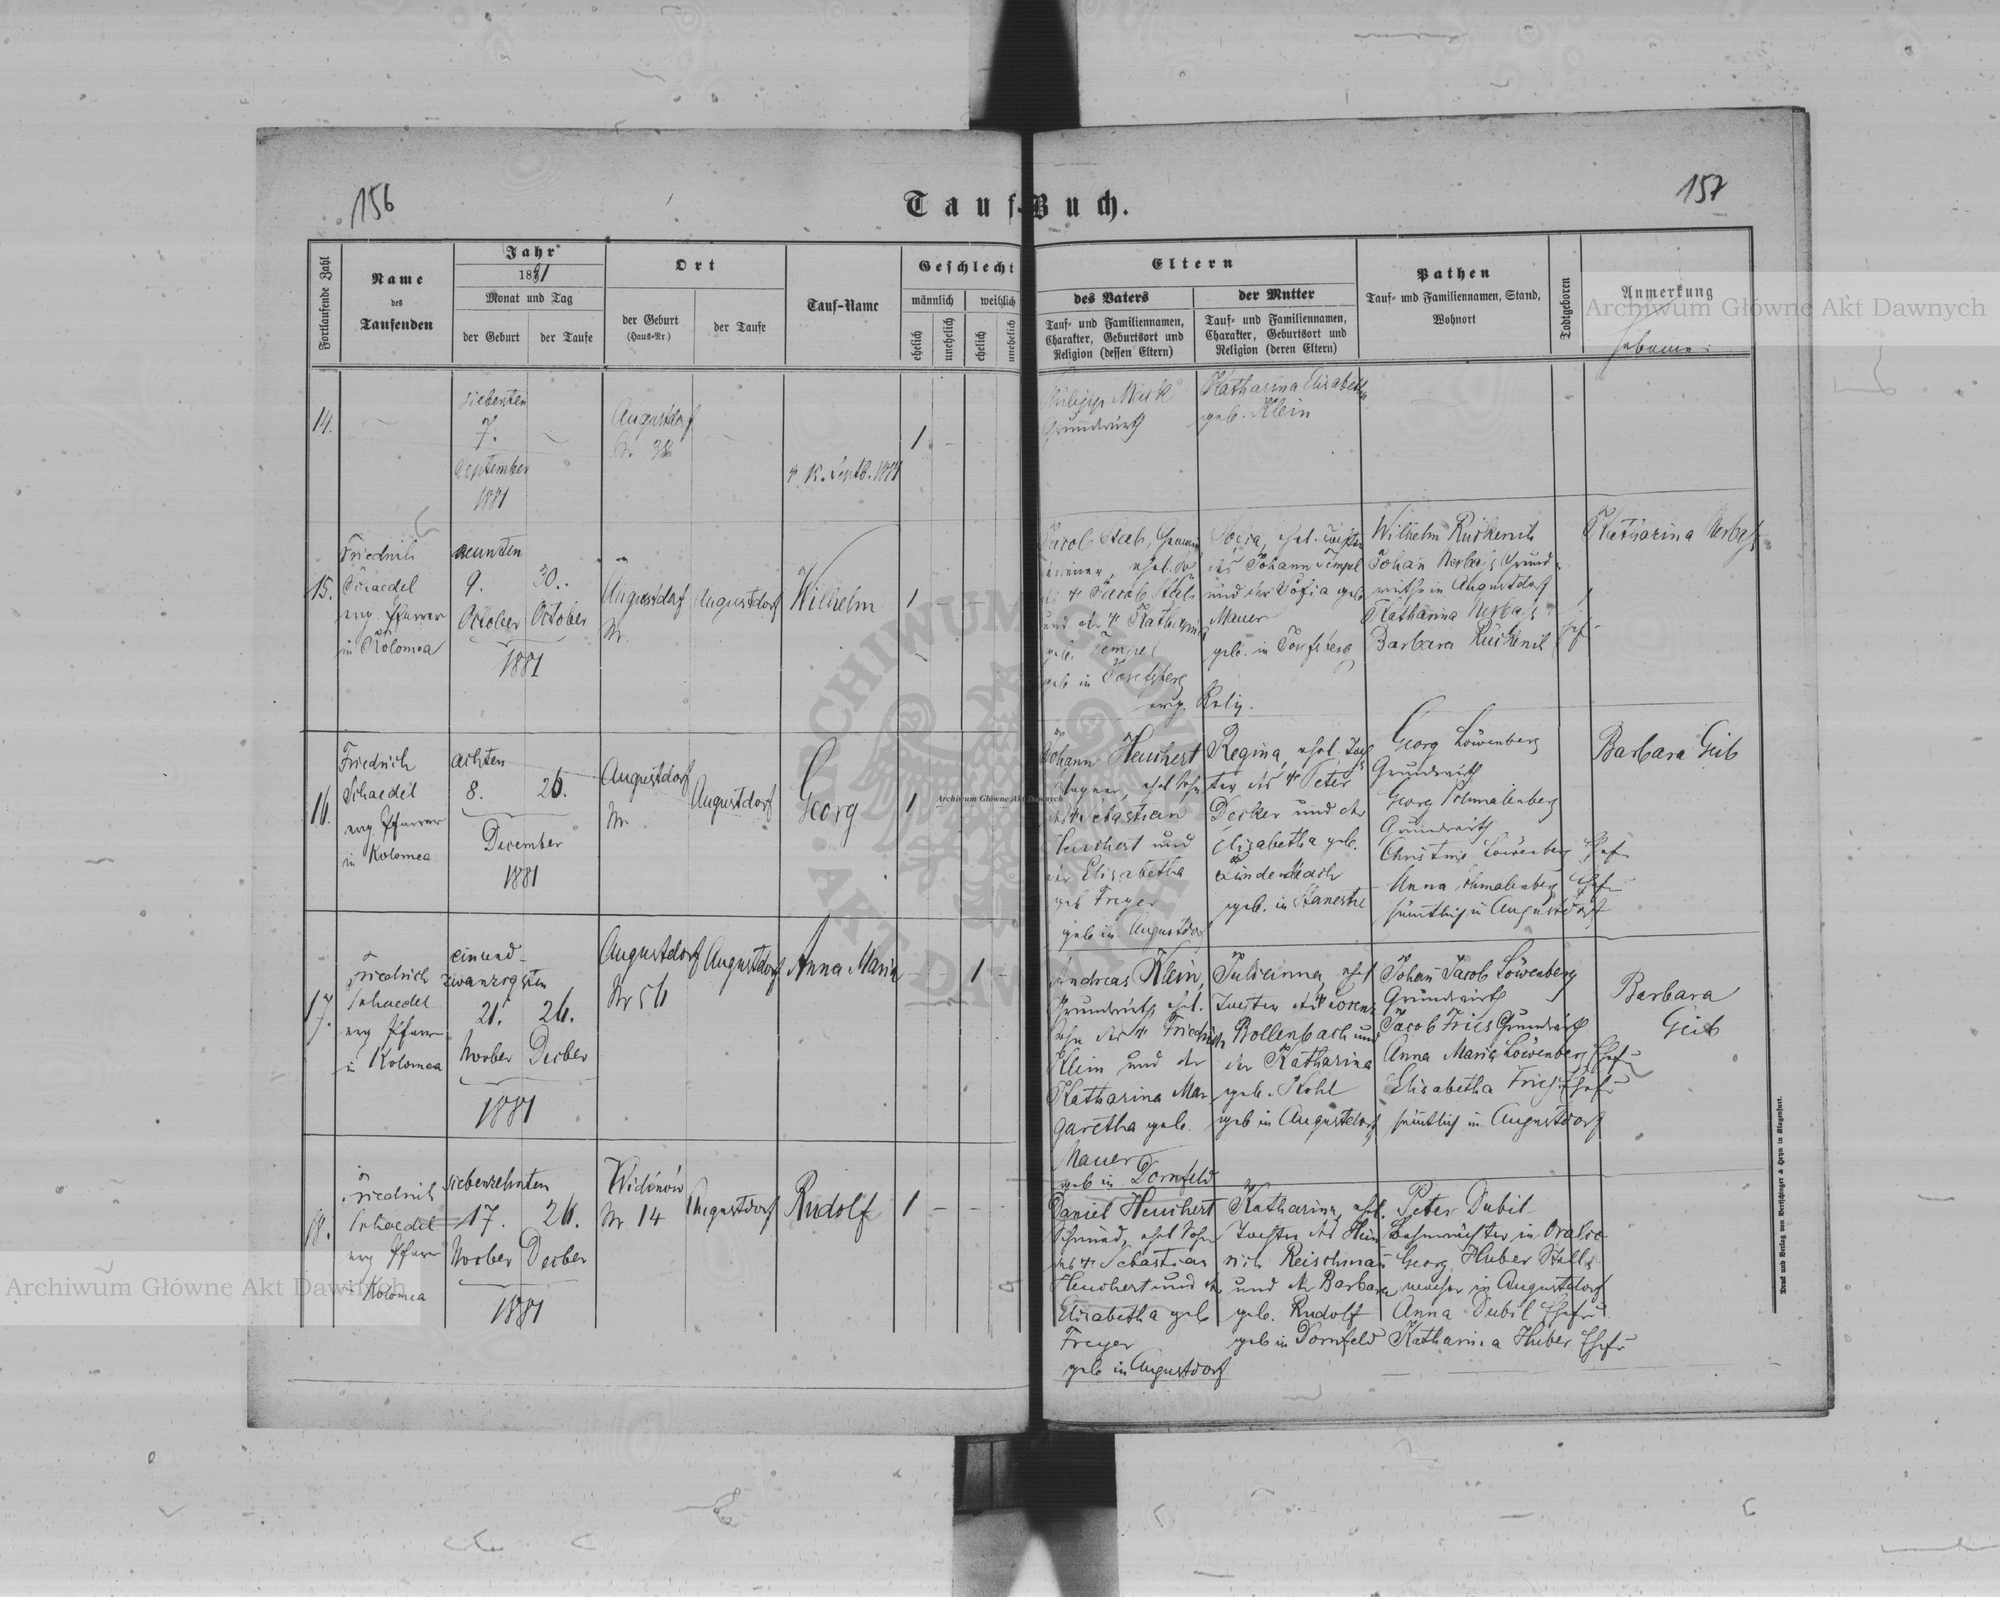 156
157
Tauf-Buch.
Fortlaufende Zahl
Name
des
Taufenden
Jahr
1881
Monat und Tag
der Geburt
der Taufe
Ort
der Geburt
(Haus-Nr.)
der Taufe
Tauf-Name
Geschlecht
männlich
weiblich
ehelich
unehelich
ehelich
unehelich
Eltern
des Vaters
Tauf- und Familiennamen,
Charakter, Geburtsort und
Religion (dessen Eltern)
der Mutter
Tauf- und Familiennamen,
Charakter, Geburtsort und
Religion (deren Eltern)
Pathen
Tauf- und Familiennamen, Stand,
Wohnort
Todtgeboren
Anmerkung
14.
siebenten
7.
September
1881
Augustdorf
Nr 38
Septb. 1881
1
Philipp
Grundwirth
Katharina Elisabetha
geb. Klein
15.
Friedrich
Schaedel
evg. Pfarrer
in Kolomea
neunten
9.
October
30.
October
1881
Augustdorf
Nr.
Augustdorf
Wilhelm
1
Jacob
und der Katharina
geb. Tempel
geb in Josefsberg
evg. Relig.
des Johann Tempel
und der Sofia geb
Mauer
geb. in Josefsberg
Wilhelm
Johan Grund-
wirthe in Augustdorf
Katharina
Barbara
Katharina
16.
Friedrich
Schaedel
evg. Pfarrer
in Kolomea
achten
8.
26.
December
1881
Augustdorf
Nr.
Augustdorf
Georg
1
Johann Heuchert
Wagner, ehel Sohn
des Sebastian
Heuchert und
der Elisabetha
geb Freyer
geb in Augustdorf
Regina, ehel. Toch
ter des Peter
Decker und der
Elisabetha geb.
geb. in
Georg Löwenberg
Grundwirth
Georg Schmalenberg
Grundwirth
Christine Löwenberg Ehefr
Anna Schmalenberg Ehefr
sämtlich in Augustdorf
Barbara Geib
17.
Friedrich
Schaedel
evg Pfarrer
in Kolomea
einund-
zwanzigsten
21.
Novber
26.
Decber
1881
Augustdorf
Nr 56
Augustdorf
Anna Maria
1
Andreas Klein,
Grundwirth, ehel.
Sohn des Friedrich
Klein und der
Katharina Mar
garetha geb.
Mauer
geb in Dornfeld
Julianna, ehel
Tochter des Lorenz
Bollenbach und
der Katharina
geb. Kohl
geb in Augustdorf
Johan Jacob Löwenberg
Grundwirth
Jacob Fries Grundwirth
Anna Maria Löwenberg Ehefr
Elisabetha Fries Ehefr
sämtlich in Augustdorf
Barbara
Geib
18.
Friedrich
Schaedel
evg Pfarrer
Kolomea
siebenzehnten
17.
Novber
26.
Decber
1881
Widinów
Nr 14
Augustdorf
Rudolf
1
Daniel Heuchert
Schmied, ehel Sohn
des Sebastian
Heuchert und der
Elisabetha geb
Freyer
geb in Augustdorf
Katharina, ehel.
Tochter des Hein
rich
und der Barbara
geb. Rudolf
geb in Dornfeld
Peter Dubil
Bahnwächter in
Georg Huber
in Augustdorf
Anna Dubil Ehefr
Katharina Huber Ehefr
Druck und Verlag von Bertschinger & Heyn in Klagenfurt.
Archiwum Główne Akt Dawnych
Archiwum Główne Akt Dawnych
Archiwum Główne Akt Dawnych